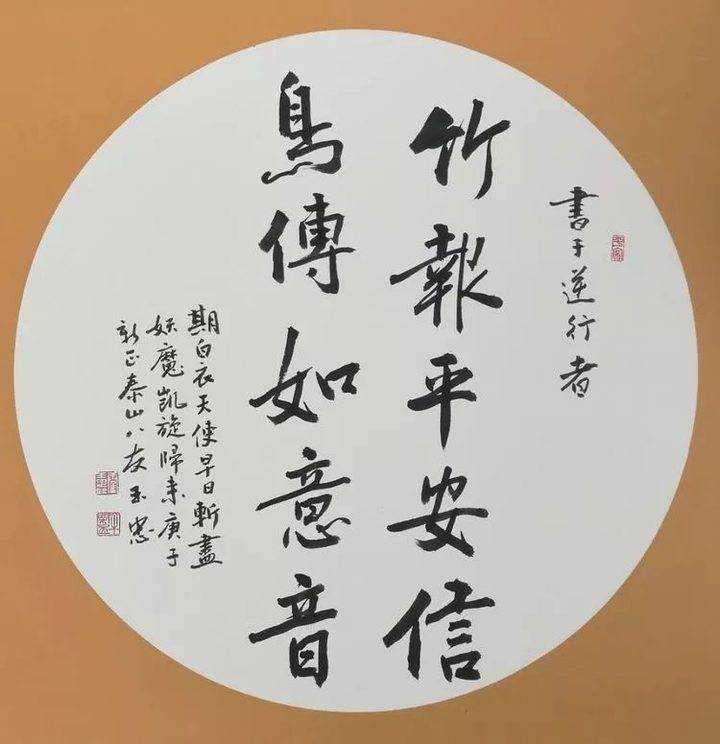 書于逆行者
竹報平安信
鳥傳如意音
期白衣天使早日斬盡
妖魔凱旋歸来庚子
新正泰山八友玉忠